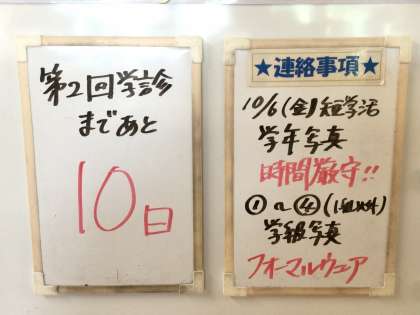 第2回学診
まであと
10日
★連絡事項★
10/6(金)短学活
学年写真
時間厳守!!
①〜④(1組以外)
学級写真
フォーマルウェア